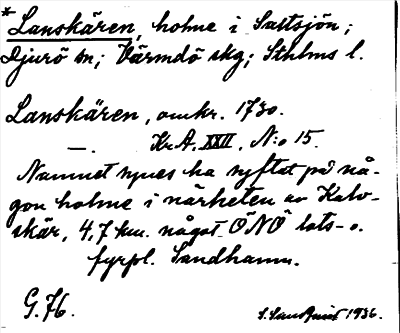 * Lanskären, holme i Saltsjön;
Djurö sn; Värmdö skg; Sthlms l.
Lanskären, omkr. 1730.
—. Kr. A. XXII, N:o 15.
Namnet synes ha syftat på nå-
gon holme i närheten av Kalv-
skär, 4,7 km. något ÖNÖ lots- o.
fyrpl. Sandhamn.
G. 76.
1936.